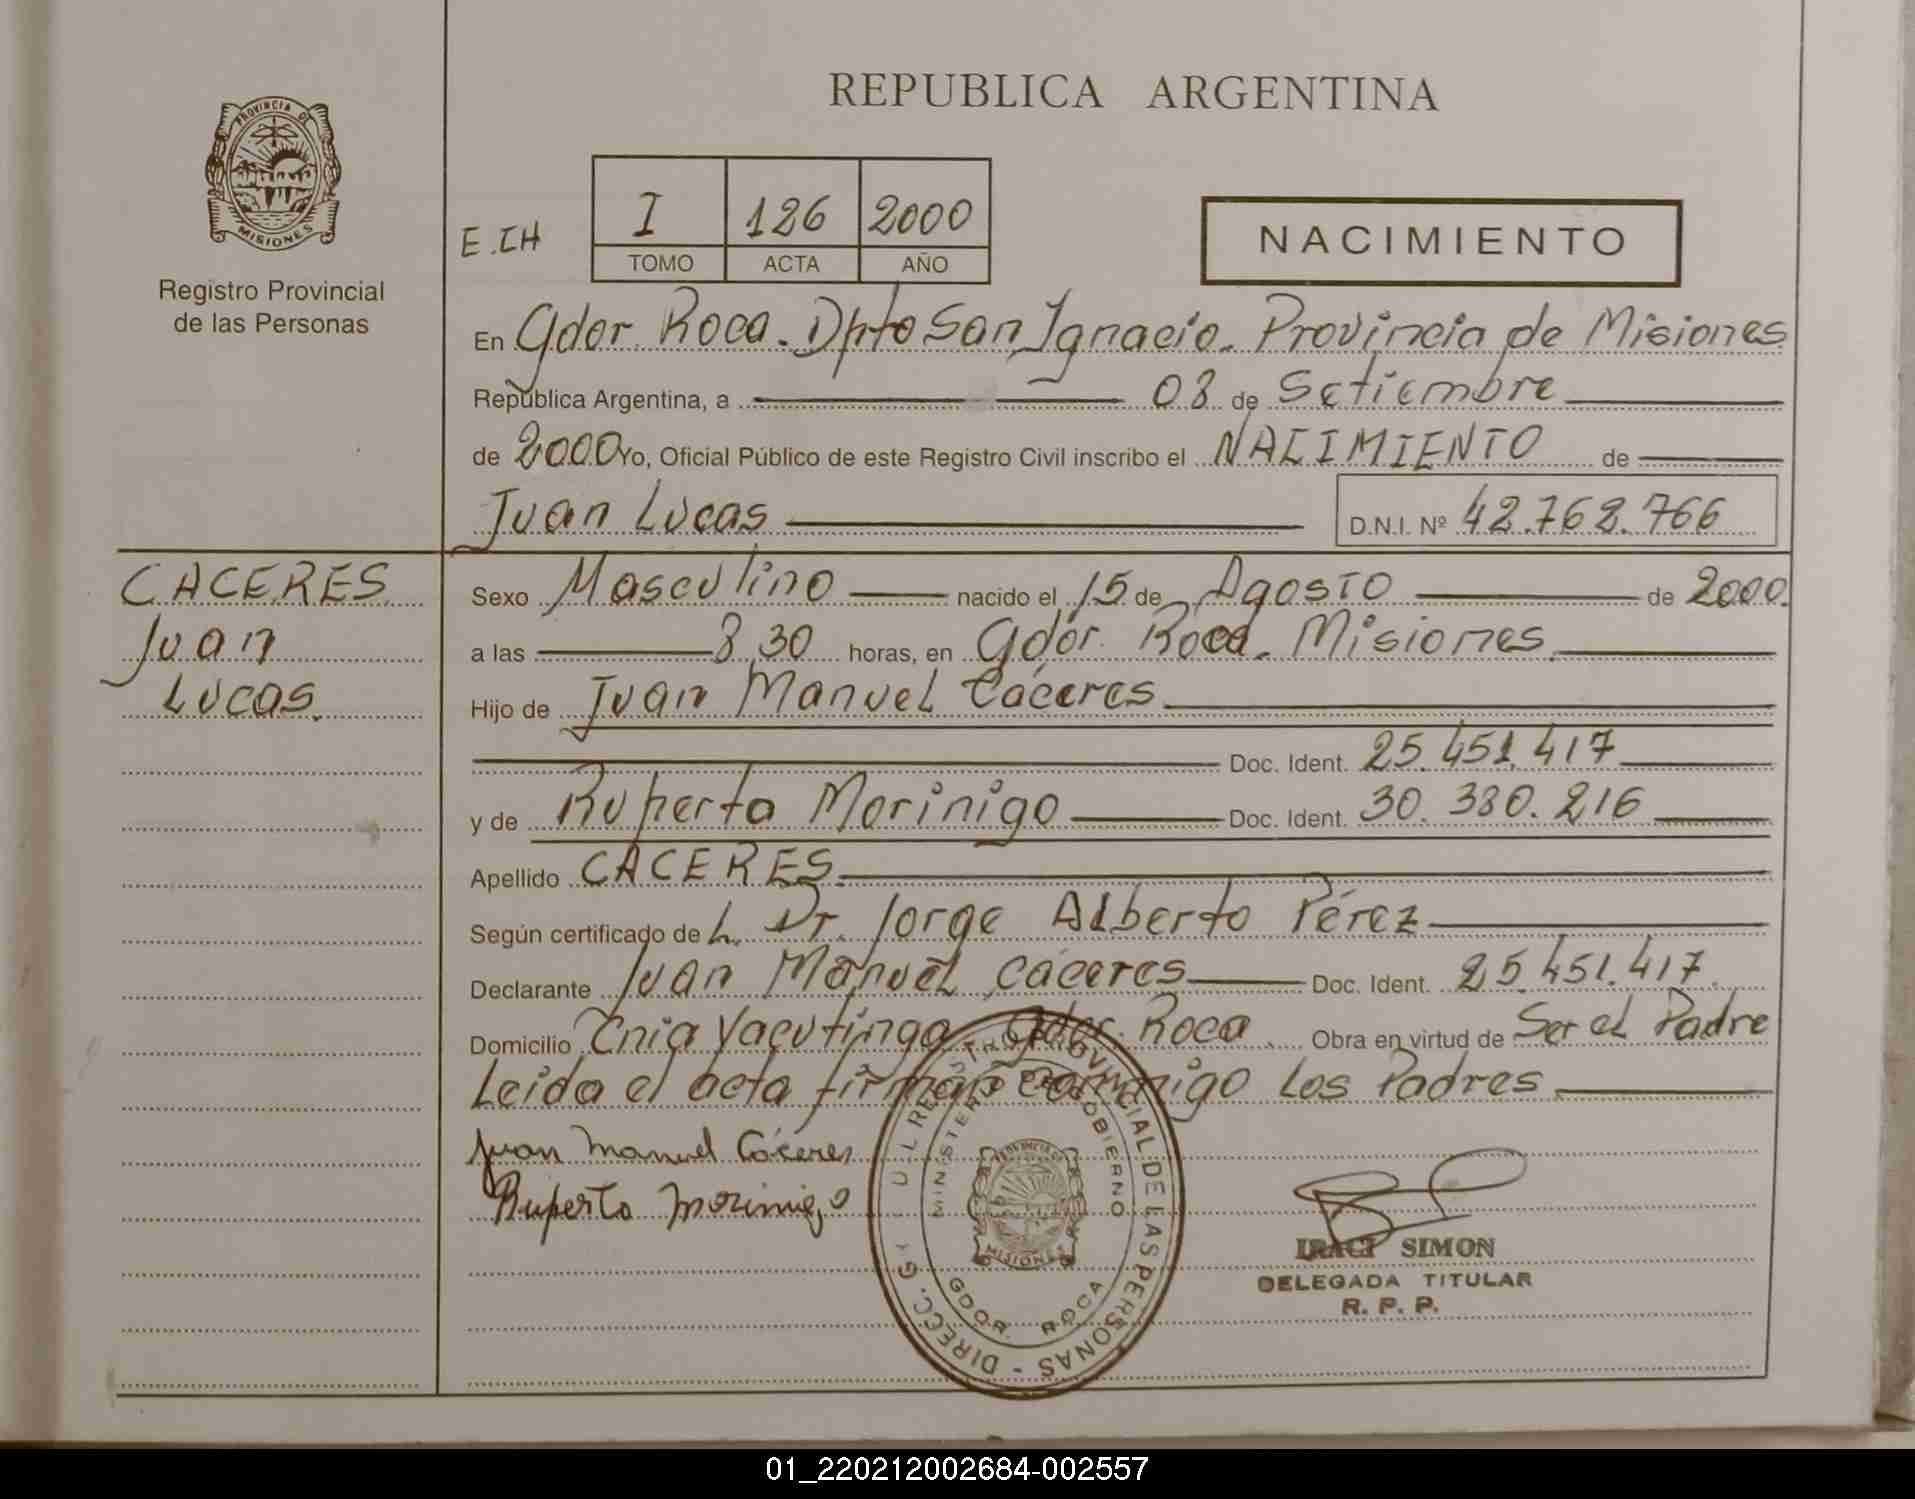 REPUBLICA ARGENTINA
PROVINCIA DE
MISIONES
Registro Provincial
de las Personas
E.CH
I 126 2000
TOMO ACTA AÑO
NACIMIENTO
En Gdor. Roca. Dpto San Ignacio. Provincia de Misiones
República Argentina, a 08 de Setiembre
de 2000 Yo, Oficial Público de este Registro Civil inscribo el NACIMIENTO de
Juan Lucas D.N.I. Nº 42.762.766
CACERES
Juan
Lucas.
Sexo Masculino nacido el 15 de Agosto de 2000.
a las 8,30 horas, en Gdor. Roca. Misiones.
Hijo de Juan Manuel Cáceres
Doc. Ident. 25.451.417
y de Ruperta Morinigo Doc. Ident. 30.380.216
Apellido CACERES.
Según certificado de L. Dr. Jorge Alberto Pérez
Declarante Juan Manuel Cáceres Doc. Ident. 25.451.417.
Domicilio Cnia Yacutinga Gdor. Roca. Obra en virtud de Ser el Padre
Leida el acta firman conmigo Los Padres
Juan Manuel Cáceres
Ruperta Morinigo
REGISTRO PROVINCIAL DE LAS PERSONAS - DIRECC.
MINISTERIO DE GOBIERNO
MISIONES
GDOR. ROCA
IRACI SIMON
DELEGADA TITULAR
R. P. P.
01_220212002684-002557